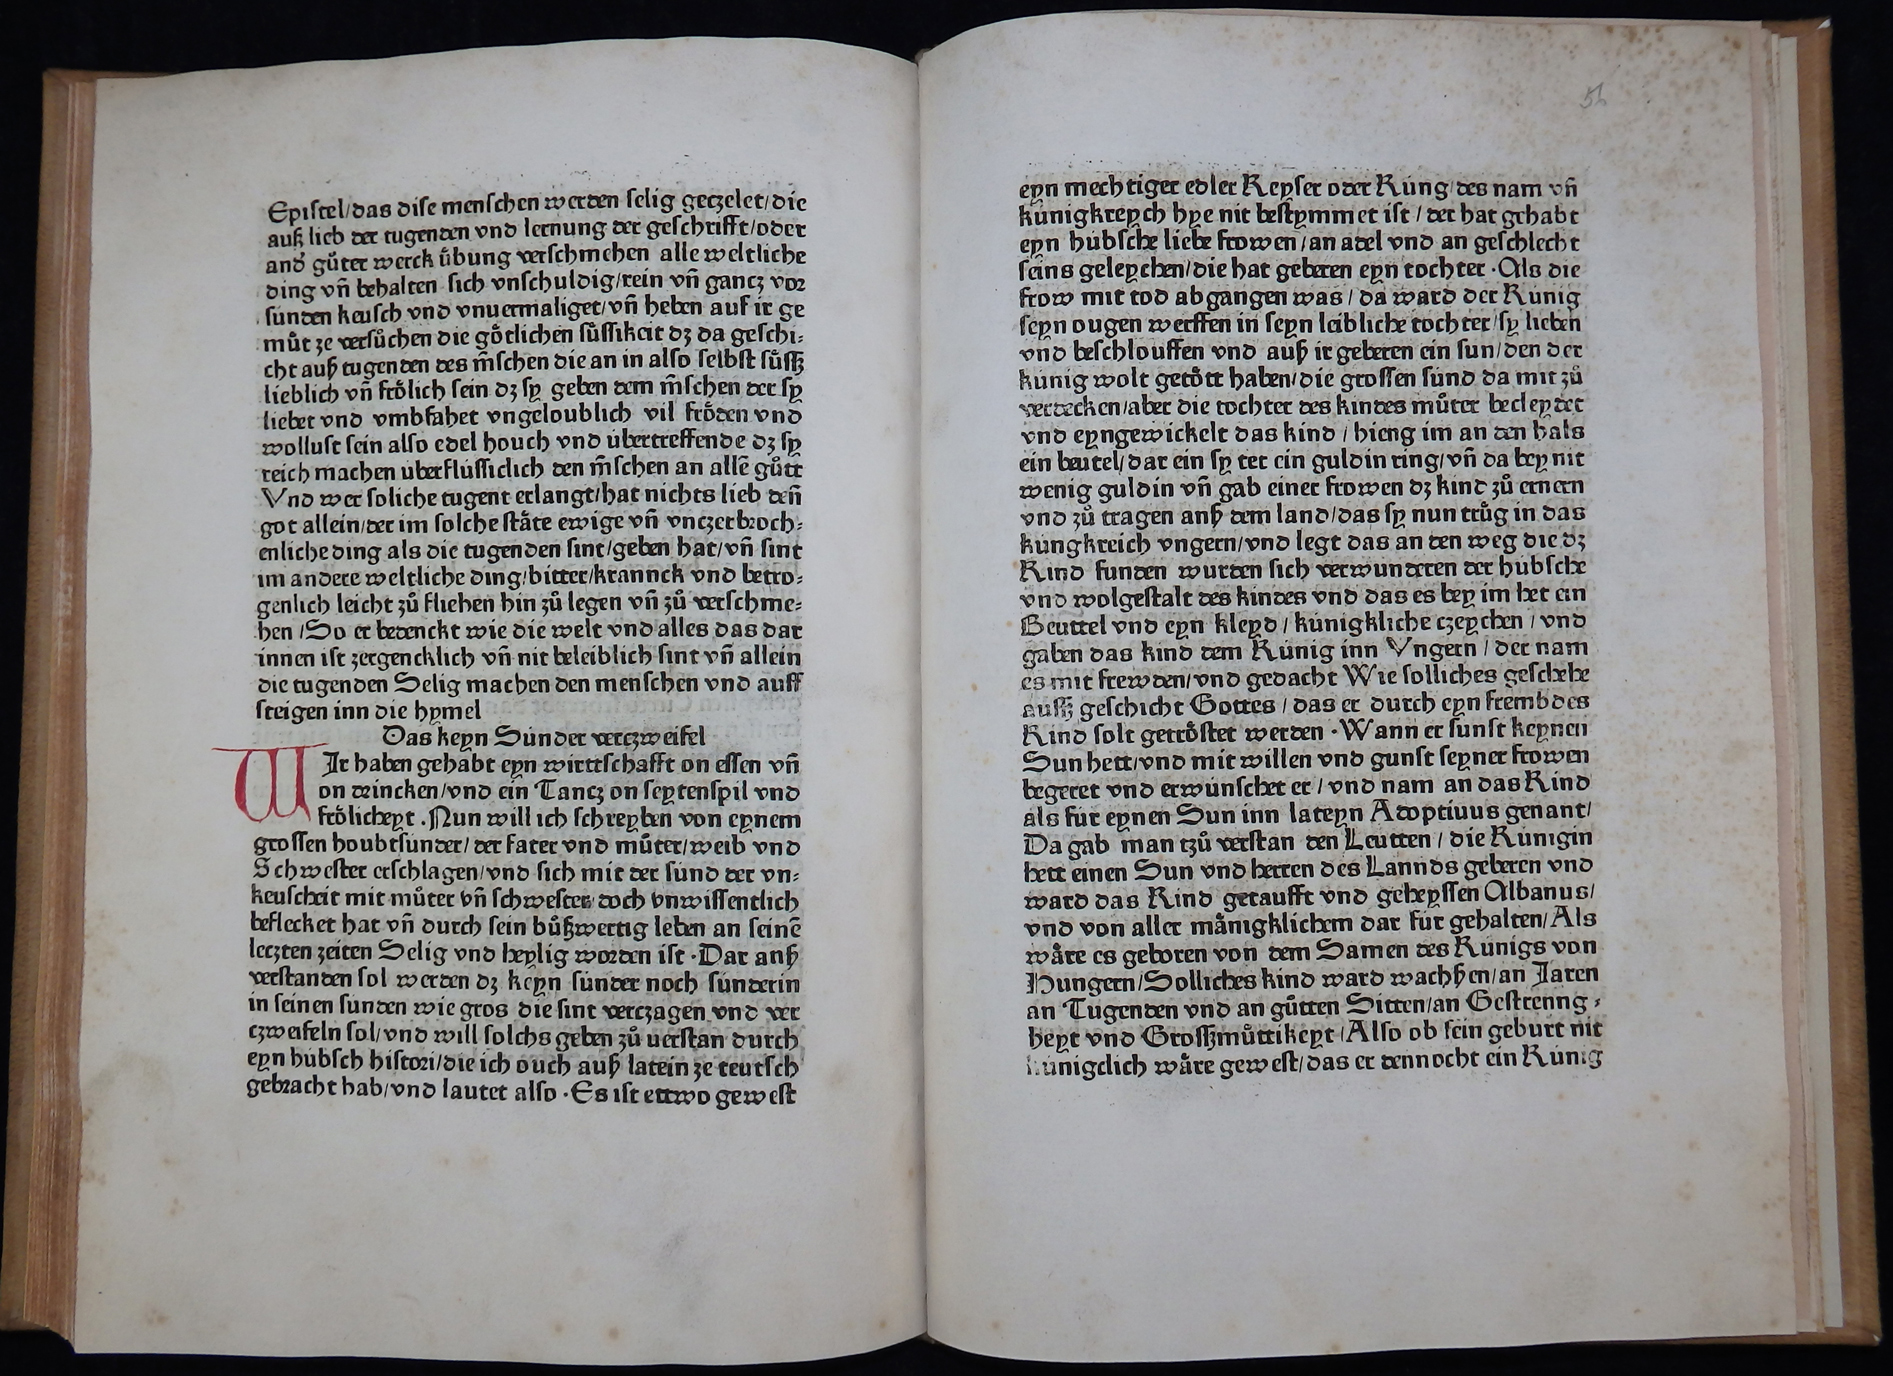 Epistel/das dise menschen werden selig geczelet/die
auß lieb der tugenden vnd lernung der geschrifft/oder
and' gůter werck ůbung verschmehen alle weltliche
ding vñ behalten sich vnschuldig/rein vñ gancz vor
sunden keusch vnd vnuermaliget/vñ heben auf ir ge
můt ze versůchen die gǒtlichen sůssikeit dz da geschi⸗
cht auß tugenden des m̃schen die an in also selbst sůssz
lieblich vñ frǒlich sein dz sy geben dem m̃schen der sy
liebet vnd vmbfahet vngeloublich vil frǒden vnd
wollust sein also edel houch vnd übertreffende dz sy
reich machen überflüssiclich den m̃schen an allẽ gůtt
Vnd wer soliche tugent erlangt/hat nichts lieb deñ
got allein/der im solche stǎte ewige vñ vnczerbroch⸗
enliche ding als die tugenden sint/geben hat/vñ sint
im andere weltliche ding/bitter/kranck vnd betro⸗
genlich leicht zů fliehen hin zů legen vñ zů verschme⸗
hen/So er bedenckt wie die welt vnd alles das dar
innen ist zergencklich vñ nit beleiblich sint vñ allein
die tugenden Selig machen den menschen vnd auff
steigen inn die hymel
Das keyn Sünder verczweifel
WIr haben gehabt eyn wirttschafft on essen vñ
on drincken/vnd ein Tancz on seytenspil vnd
frǒlicheyt. Nun will ich schreyben von eynem
grossen houbtsünder/der fater vnd můter/weib vnd
Schwester erschlagen/vnd sich mit der sünd der vn⸗
keuscheit mit můter vñ schwester doch vnwissentlich
beflecket hat vñ durch sein bůßwertig leben an seinẽ
leczten zeiten Selig vnd heylig worden ist·Dar auß
verstanden sol werden dz keyn sünder noch sünderin
in seinen sünden wie gros die sint verczagen vnd ver
czweifeln sol/vnd will solchs geben zů uerstan durch
eyn hübsch histori/die ich ouch auß latein ze teutsch
gebracht hab/vnd lautet also·Es ist ettwo gewest
51
eyn mechtiger edler Keyser oder Küng/des nam vñ
künigkreych hye nit bestymmet ist/der hat gehabt
eyn hübsche liebe frowen/an adel vnd an geschlecht
seins geleychen/die hat geberen eyn tochter·Als die
frow mit tod abgangen was/da ward der Künig
seyn ougen werffen in seyn leibliche tochter/sy lieben
vnd beschlouffen vnd auß ir geberen ein sun/den der
künig wolt getǒtt haben/die grossen sünd da mit zů
verdecken/aber die tochter des kindes můter becleydet
vnd eyngewickelt das kind/hieng im an den hals
ein beutel/dar ein sy tet ein guldin ring/vñ da bey nit
wenig guldin vñ gab einer frowen dz kind zů ernern
vnd zů tragen auß dem land/das sy nun trůg in das
küngkreich vngern/vnd legt das an den weg die dz
Kind funden wurden sich verwunderen der hübsche
vnd wolgestalt des kindes vnd das es bey im het ein
Beuttel vnd eyn kleyd/künigkliche czeychen/vnd
gaben das kind dem Künig inn Vngern/der nam
es mit frewden/vnd gedacht Wie solliches geschehe
aussz geschicht Gottes/das er durch eyn frembdes
Kind solt getrǒstet werden·Wann er sunst keynen
Sun hett/vnd mit willen vnd gunst seyner frowen
begeret vnd erwünschet er/vnd nam an das Kind
als für eynen Sun inn lateyn Adoptiuus genant/
Da gab man tzů verstan den Leutten/die Künigin
hett einen Sun vnd herren des Lannds geberen vnd
ward das Kind getaufft vnd geheyssen Albanus/
vnd von aller mǎnigklichem dar für gehalten/Als
wǎre es geboren von dem Samen des Künigs von
Hungern/Solliches kind ward wachßen/an Jaren
an Tugenden vnd an gůtten Sitten/an Gestrenng⸗
heyt vnd Grosszmůttikeyt/Also ob sein geburt nit
künigclich wǎre gewest/das er dennocht ein Künig